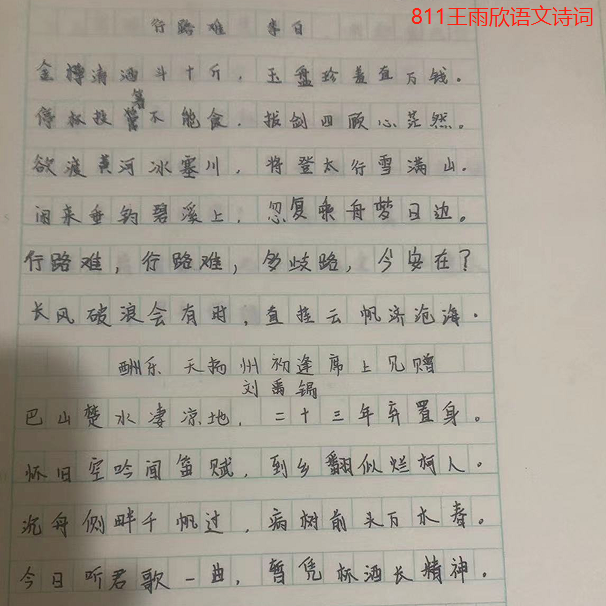 811王雨欣语文诗词
行路难 李白
金樽清酒斗十斤，玉盘珍羞直万钱。
停杯投箸不能食，拔剑四顾心茫然。
欲渡黄河冰塞川，将登太行雪满山。
闲来垂钓碧溪上，忽复乘舟梦日边。
行路难，行路难，多歧路，今安在？
长风破浪会有时，直挂云帆济沧海。
酬乐天扬州初逢席上见赠
刘禹锡
巴山楚水凄凉地，二十三年弃置身。
怀旧空吟闻笛赋，到乡翻似烂柯人。
沉舟侧畔千帆过，病树前头万木春。
今日听君歌一曲，暂凭杯酒长精神。